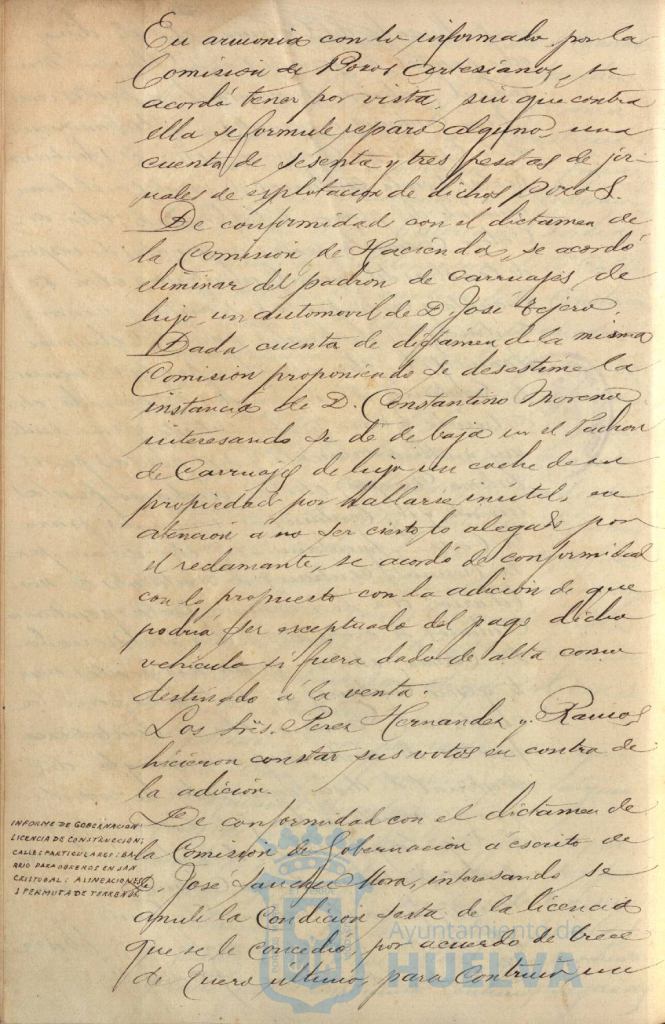 En armonia con lo informado por la
Comision de Pozos Cortesianos, se
acordó tener por vista, sin que contra
ella se formule reparo alguno, una
cuenta de sesenta y tres pesetas de jor-
nales de explotacion de dichos Pozos.
De conformidad con el dictamen de
la Comision de Hacienda, se acordó
eliminar del padron de carruajes de
lujo un automovil de D. Jose Tejero.
Dada cuenta de dictamen de la misma
Comision proponiendo se desestime la
instancia de D. Constantino Morena
interesando se dé de baja en el Padron
de Carruajes de lujo un coche de su
propiedad por hallarse inútil, en
atención á no ser cierto lo alegado por
el reclamante, se acordó de conformidad
con lo propuesto con la adición de que
podria ser exceptuado del pago dicho
vehículo si fuera dado de alta como
destinado á la venta.
Los Srs. Perez Hernandez y Ramos
hicieron constar sus votos en contra de
la adición.
De conformidad con el dictamen de
la Comision de Gobernación a escrito de
D. José Sanchez Mora, interesando se
anule la Condicion sesta de la licencia
que se le concedió, por acuerdo de trece
de Enero ultimo, para Construir un
INFORME DE GOBERNACION:
LICENCIA DE CONSTRUCCION;
CALLES PARTICULARES: BA-
RRIO PARA OBREROS EN SAN
CRISTOBAL: ALINEACIONES
Y PERMUTA DE TERRENOS.
Ayuntamiento de
HUELVA